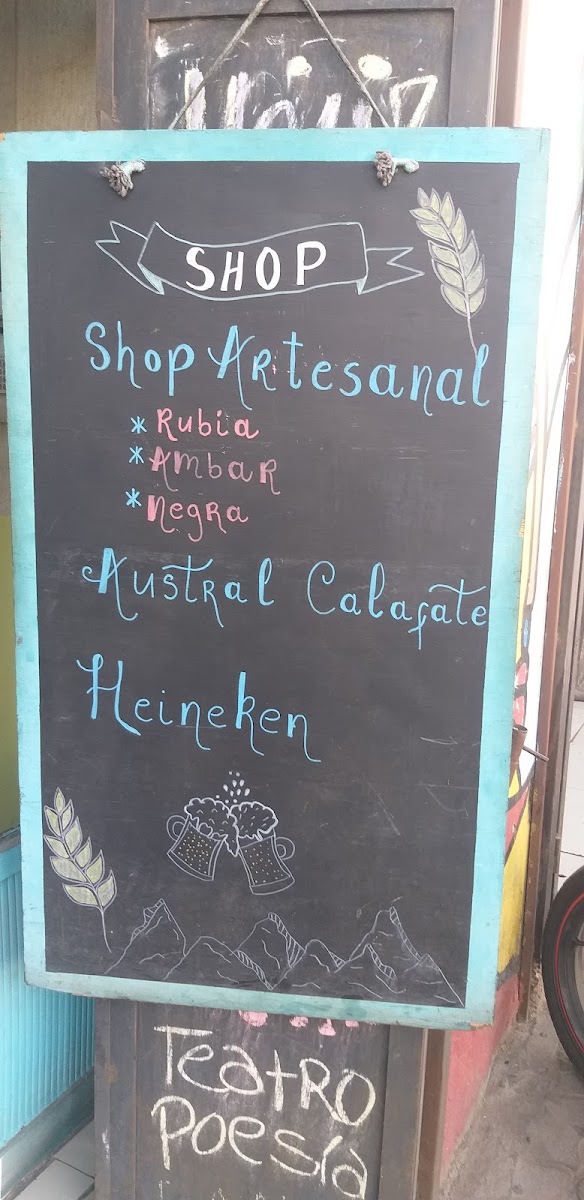 SHOP
Shop Artesanal
* Rubia
* Ambar
* Negra
Austral Calafate
Heineken
Teatro
Poesía